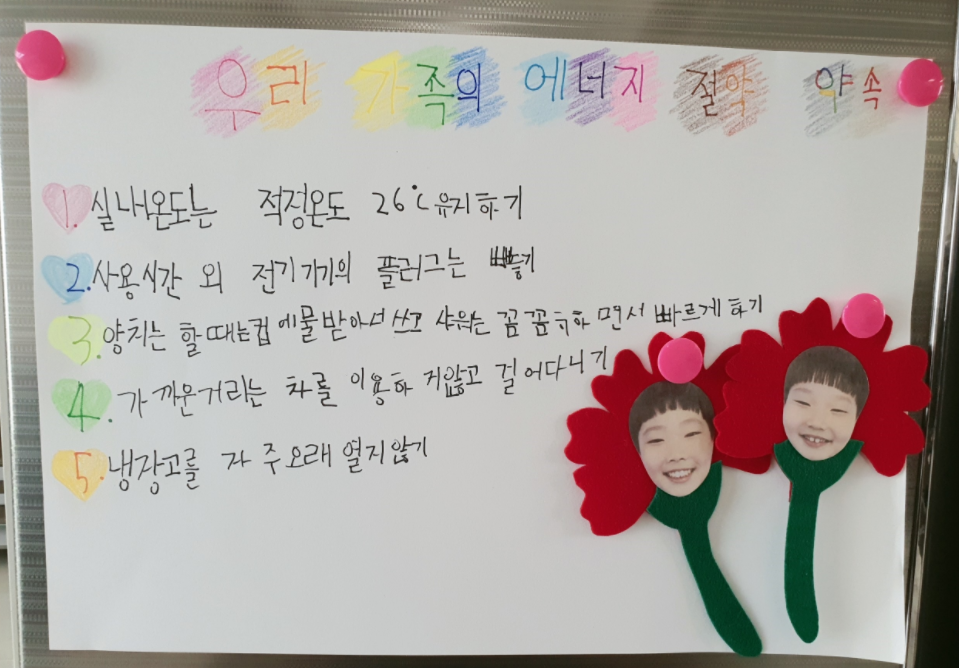 우리 가족의 에너지 절약 약속
1. 실내온도는 적정온도 26°C유지하기
2. 사용시간 외 전기기기의 플러그는 빼놓기
3. 양치는 할때는컵에물받아서쓰고 샤워는 꼼꼼히하면서 빠르게하기
4. 가까운거리는 차를 이용하지않고 걸어다니기
5. 냉장고를 자주오래열지않기